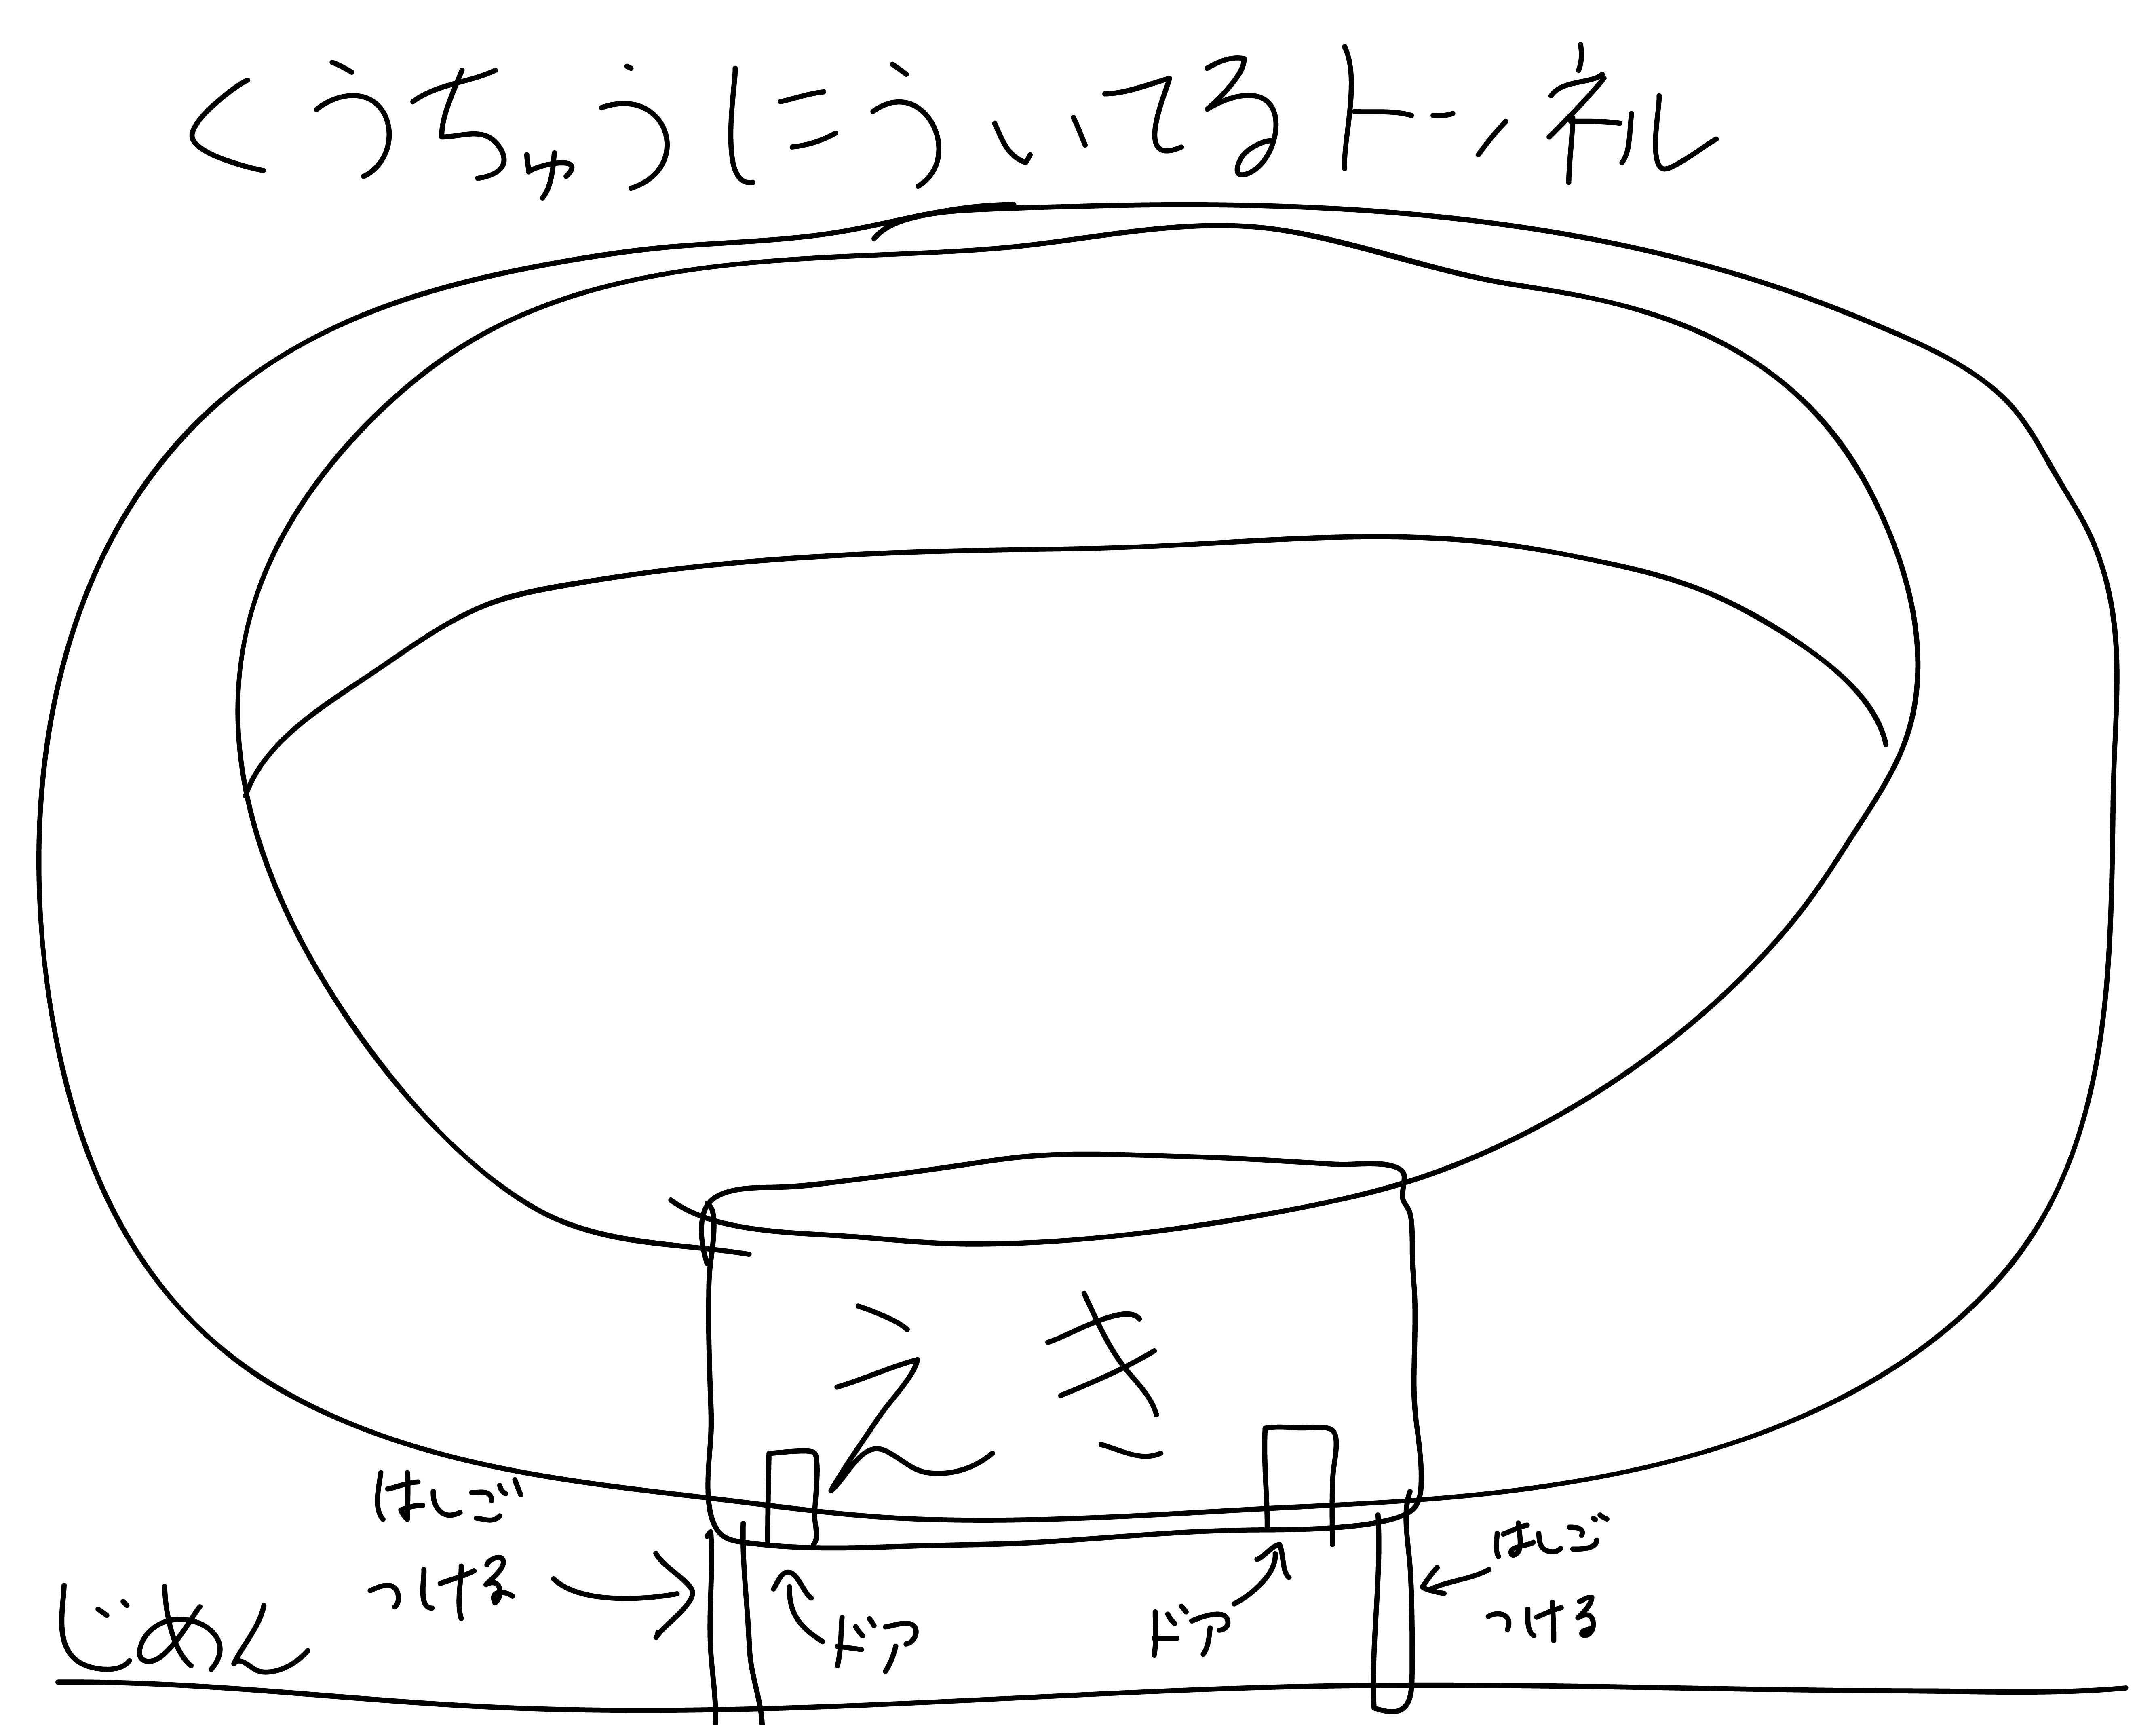 くうちゅうにういてるトンネル
えき
はしご
つける
ドア
ドア
はしご
つける
じめん